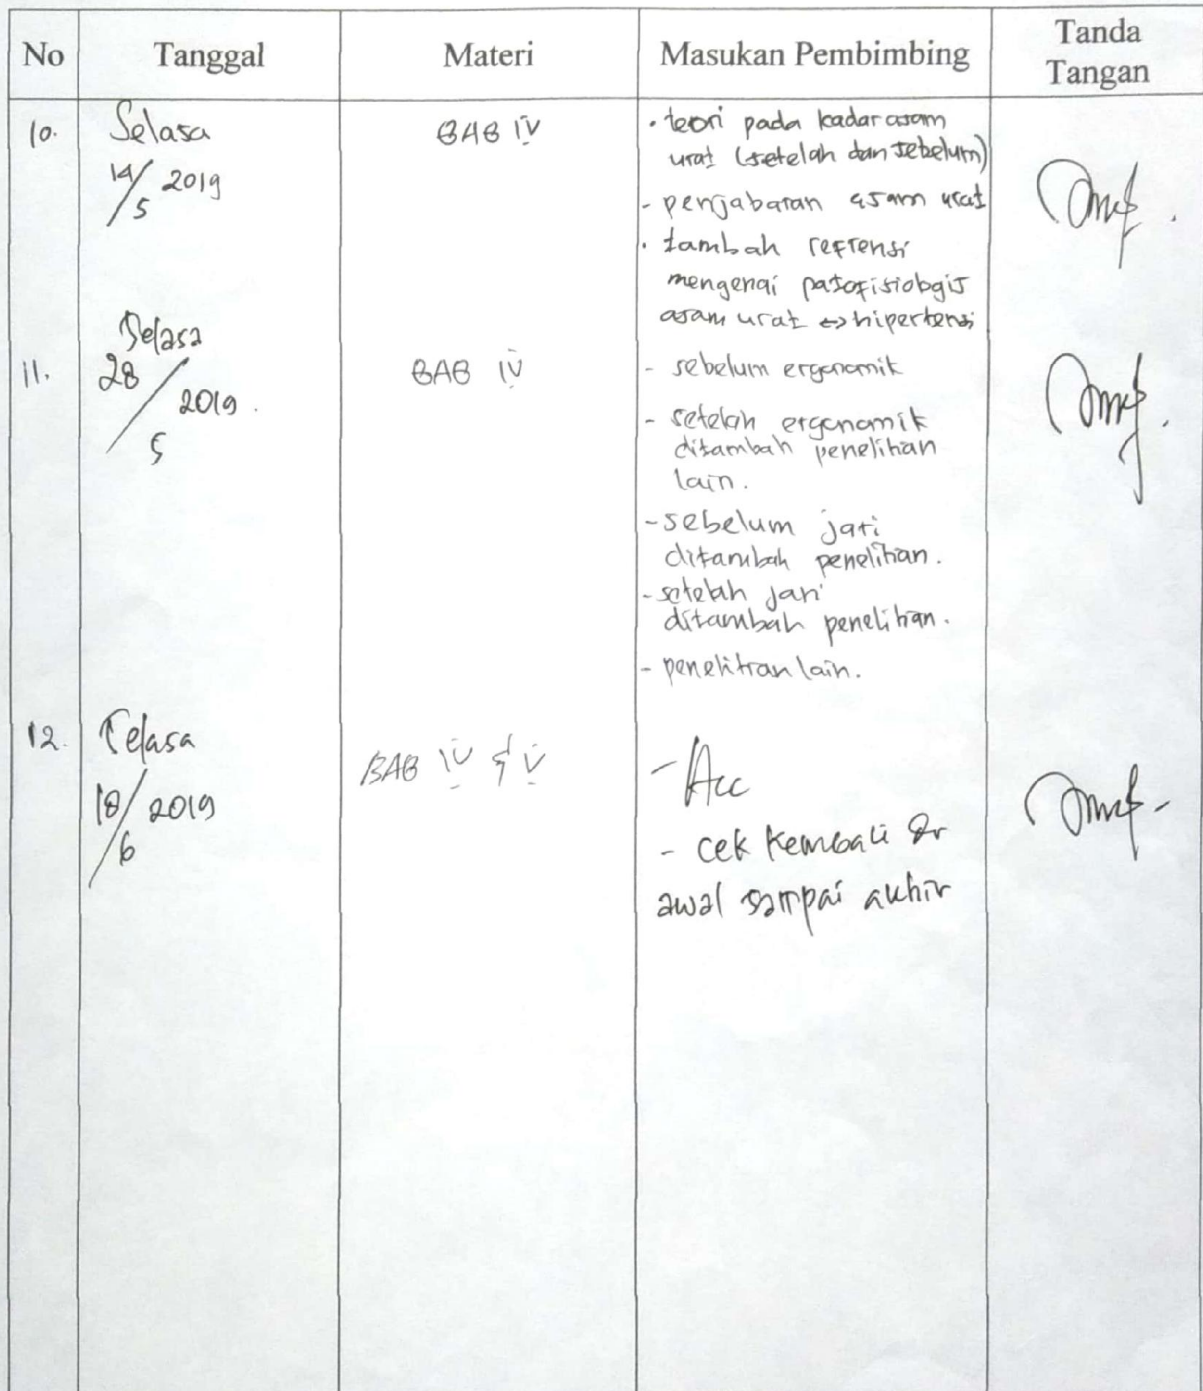 No Tanggal Materi Masukan Pembimbing Tanda Tangan
10. Selasa 14/5 2019
BAB IV
• teori pada kadar asam
urat (setelah dan sebelum)
- penjabaran asam urat
• tambah refrensi
mengenai patofisiologis
asam urat ↔ hipertensi
11. Selasa 28/5 2019.
BAB IV
- sebelum ergonomik
- setelah ergonomik
ditambah penelitian
lain.
- sebelum jati
ditambah penelitian.
- setelah jari
ditambah penelitian.
- penelitian lain.
12. Selasa 18/6 2019
BAB IV & V
- Acc
- cek kembali dr
awal sampai akhir